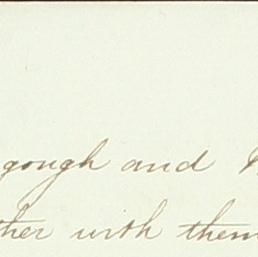 gough and
ther with them